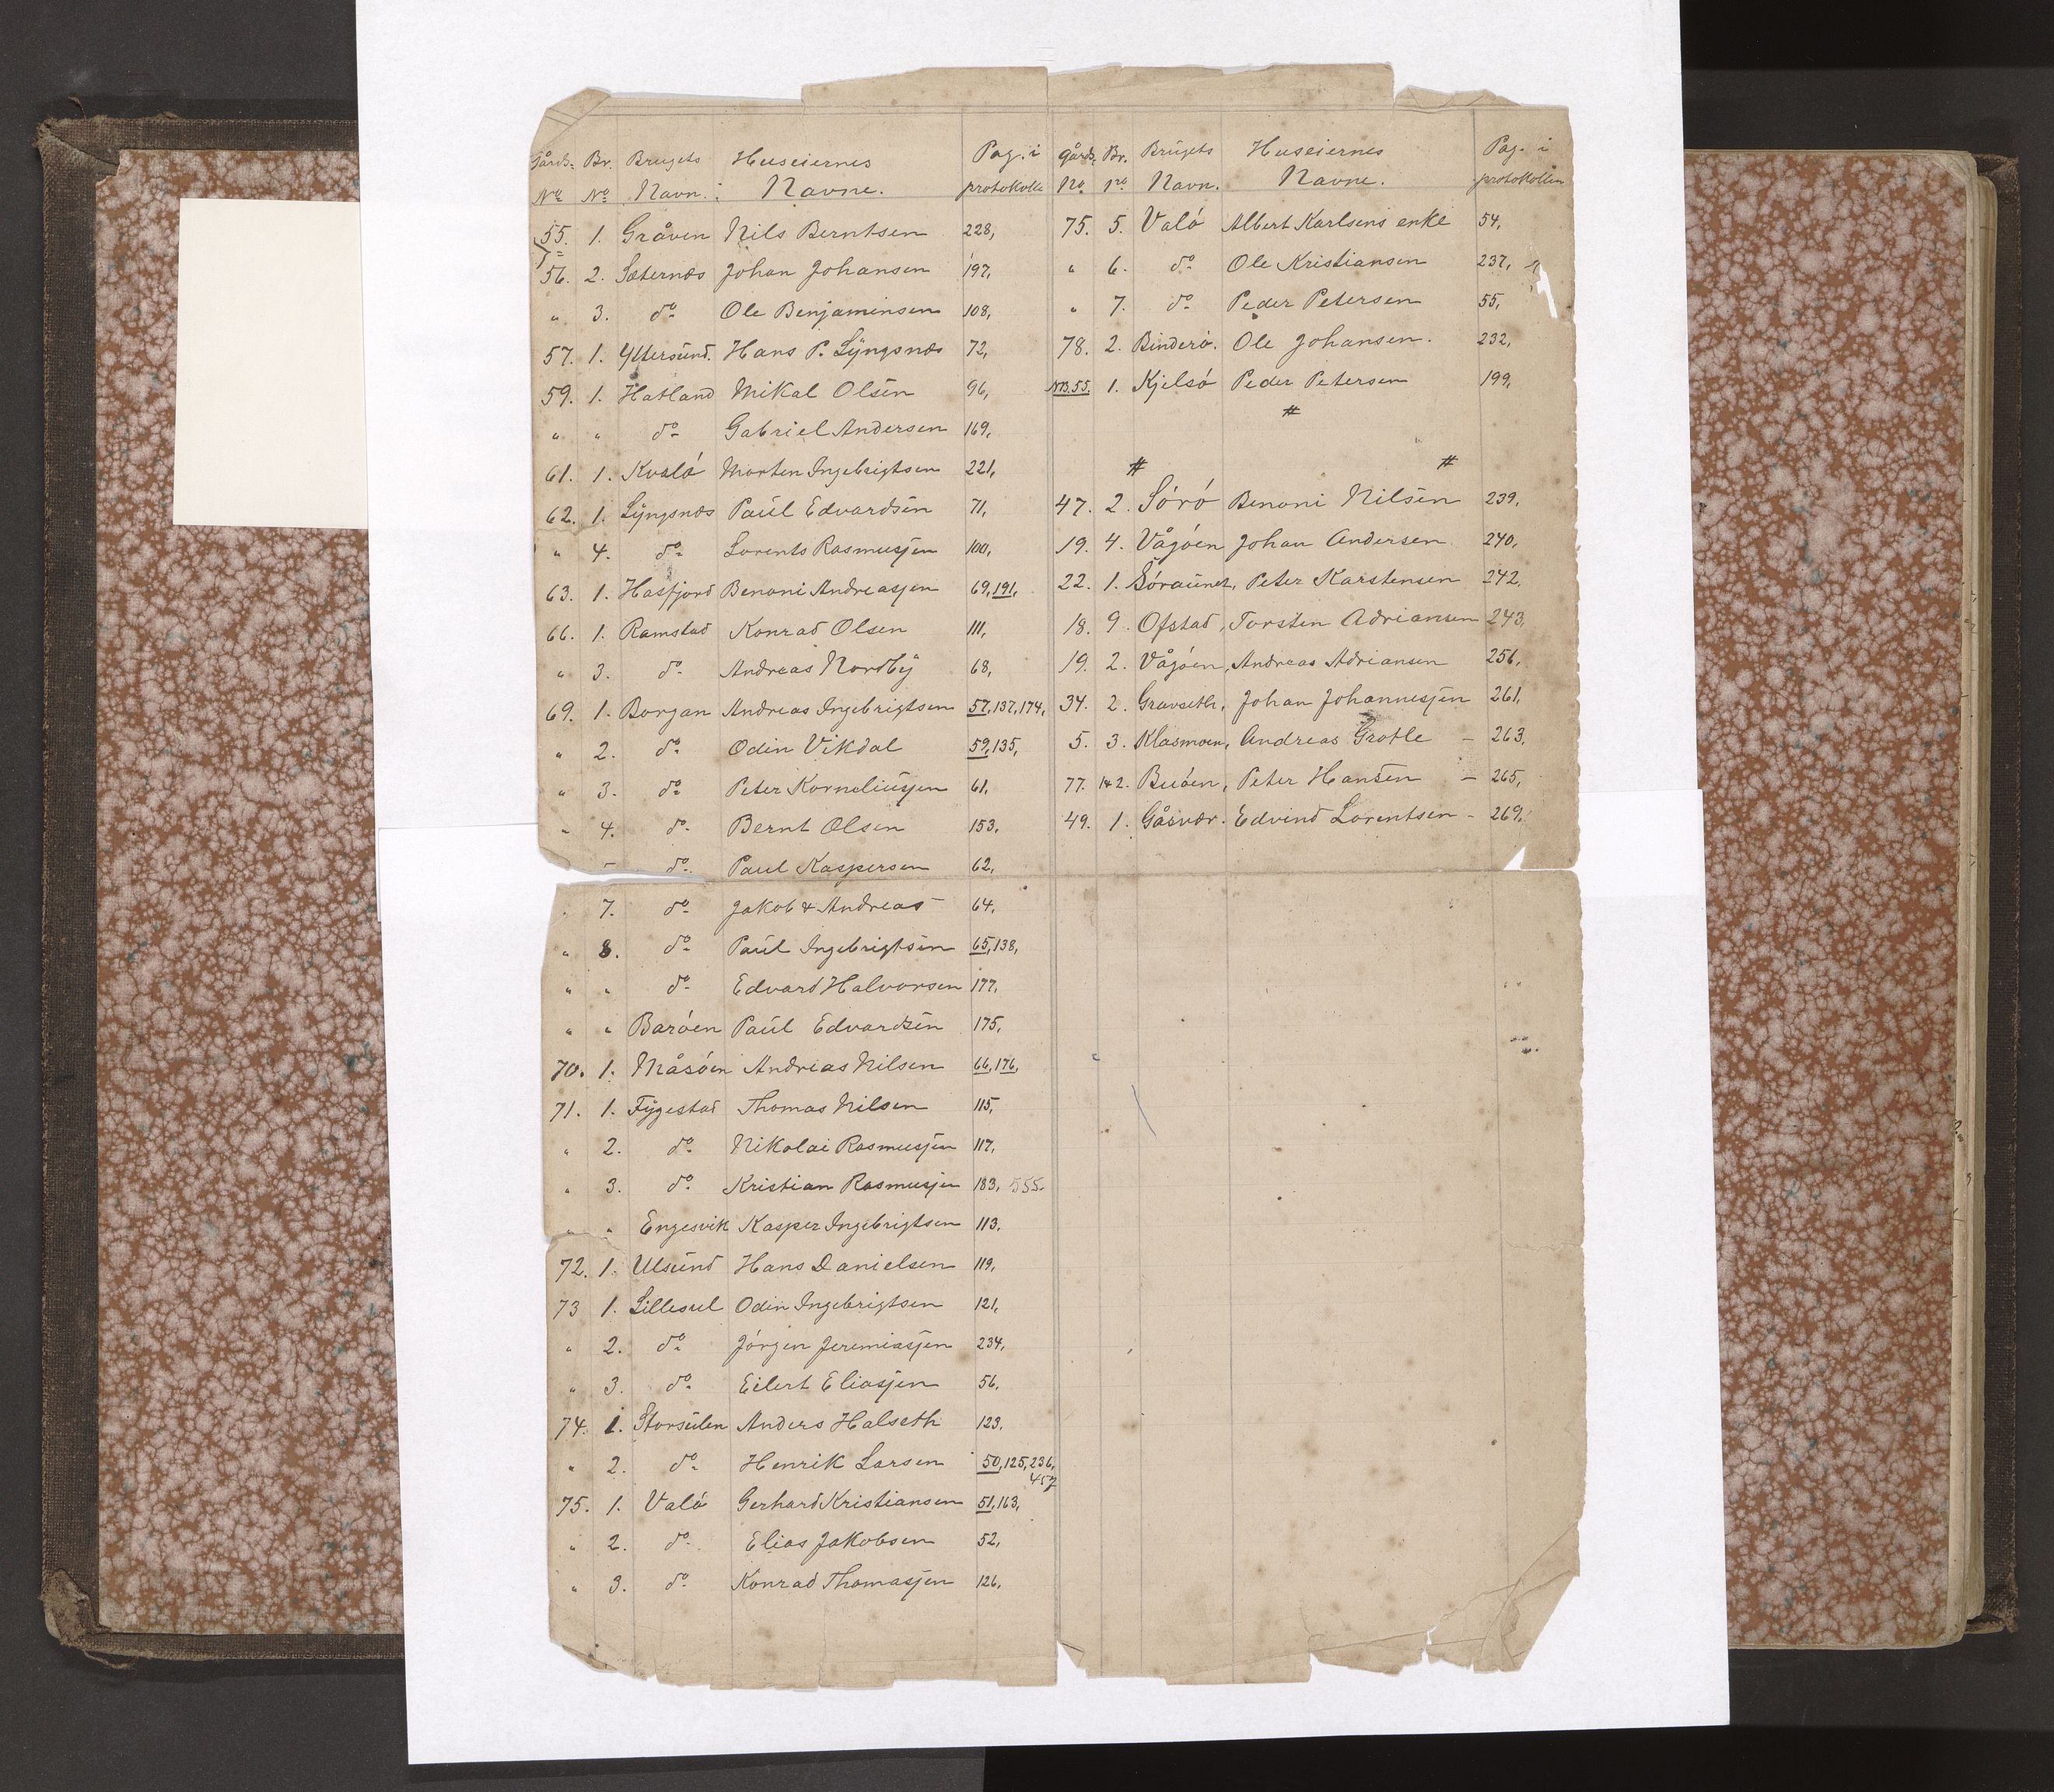 Gårds- Br. Brugets Huseiernes Pag. i
No No Navn. Navne. protokolle
55. 1. Gråven Nils Berntsen 228,
56. 2. Sæternæs Johan Johansen 197,
" 3. do Ole Benjaminsen 108,
57. 1. Yttersund. Hans P. Lÿngsnæs 72,
59. 1. Hatland Mikal Olsen 96,
" " do Gabriel Andersen 169,
61. 1. Kvaló Morten Ingebrigtsen 221,
62. 1. Lÿngsnæs Paul Edvardsen 71,
" 4. do Lorents Rasmussen 100,
63. 1. Hasfjord Benoni Andreassen 69, 191,
66. 1. Ramstad Konrad Olsen 111,
" 3. do Andreas Nordbÿ 68,
69. 1. Borgan Andreas Ingebrigtsen 57, 137, 174,
" 2. do Odin Vikdal 59, 135,
" 3. do Peter Korneliussen 61,
" 4. do Bernt Olsen 153,
do Paul Kaspersen 62,
7. do Jakob & Andreas 64,
" 8. do Paul Ingebrigtsen 65, 138,
" " do Edvard Halvorsen 177,
" " Baróen Paul Edvardsen 175,
70. 1. Måsóen Andreas Nilsen 66, 176,
71. 1. Fÿgestad Thomas Nilsen 115,
" 2. do Nikolai Rasmussen 117,
" 3. do Kristian Rasmussen 183, 555.
" " Engesvik Kasper Ingebrigtsen 113,
72. 1. Ulsund Hans Danielsen 119,
73 1. Lillesul Odin Ingebrigtsen 121,
" 2. do Jórgen Jeremiassen 234,
" 3. do Eilert Eliassen 56,
74. 1. Storsulen Anders Halseth 123,
" 2. do Henrik Larsen 50, 125, 236,
457
75. 1. Való Gerhard Kristiansen 51, 163,
" 2. do Elias Jakobsen 52,
" 3. do Konrad Thomassen 126,
Gårds. Br. Brugets Huseiernes Pag. i
No no Navn. Navne. protokollen
75. 5. Való Albert Karlsens enke 54,
" 6. do Ole Kristiansen 237,
" 7. do Peder Petersen 55,
78. 2. Binderó. Ole Johansen. 232,
NB. 55. 1. Kjelsó Peder Petersen 199,
#
# #
47. 2. Sóró Benoni Nilsen 239,
19. 4. Vågóen Johan Andersen 240,
22. 1. Sóraunet, Peter Karstensen 242,
18. 9. Ofstad, Torsten Adriansen 243,
19. 2. Vågóen, Andreas Adriansen 256,
34. 2. Gravseth, Johan Johannessen 261,
5. 3. Klasmoen, Andreas Grotle – 263,
77. 1&2. Buóen, Peter Hansen – 265,
49. 1. Gåsvær. Edvind Lorentsen - 269,